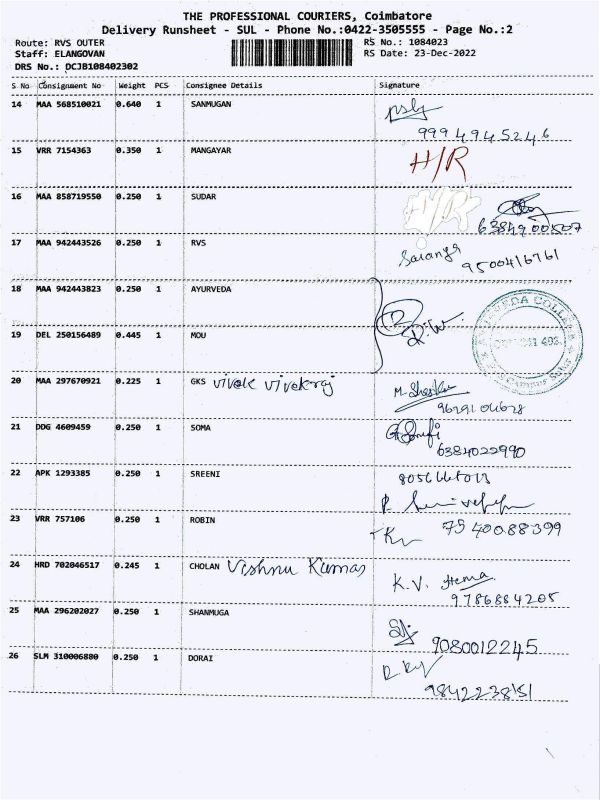 THE PROFESSIONAL COURIERS, Coimbatore
Delivery Runsheet - SUL - Phone No.:0422-3505555 - Page No.:2
Route: RVS OUTER RS No.: 1084023
Staff: ELANGOVAN RS Date: 23-Dec-2022
DRS No.: DCJB108402302
S No Consignment No Weight PCS Consignee Details Signature
14 MAA 568510021 0.640 1 SANMUGAN
9994945246
15 VRR 7154363 0.350 1 MANGAYAR H/R
16 MAA 858719550 0.250 1 SUDAR H/R
6384900507
17 MAA 942443526 0.250 1 RVS Saranya
9500416761
18 MAA 942443823 0.250 1 AYURVEDA
AYURVEDA COLLEGE
19 DEL 250156489 0.445 1 MOU
20 MAA 297670921 0.225 1 GKS vivek vivekraj
21 DDG 4609459 0.250 1 SOMA
6384022990
22 APK 1293385 0.250 1 SREENI
23 VRR 757106 0.250 1 ROBIN 7540088399
24 HRD 702046517 0.245 1 CHOLAN Vishnu Kumar
K.V. Hema
9786884205
25 MAA 296202027 0.250 1 SHANMUGA
9080012245
26 SLM 310006880 0.250 1 DORAI
9842238151